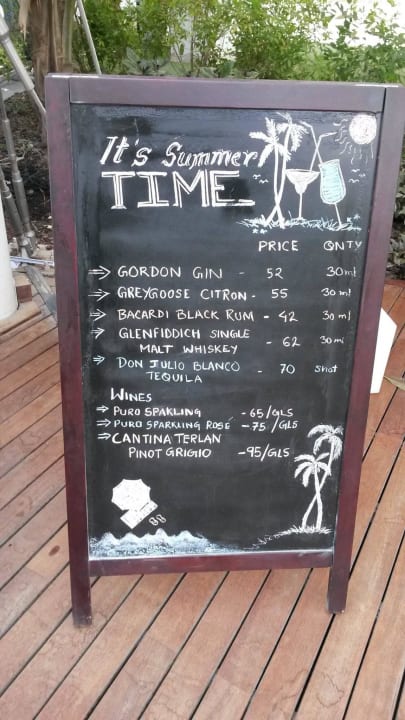 It's Summer
TIME
PRICE QNTY
⇒ GORDON GIN - 52 30ml
⇒ GREYGOOSE CITRON - 55 30 ml
⇒ BACARDI BLACK RUM - 42 30 ml
⇒ GLENFIDDICH SINGLE
MALT WHISKEY - 62 30ml
⇒ DON JULIO BLANCO
TEQUILA - 70 Shot
WINES
⇒ PURO SPAKLING - 65/GLS
⇒ PURO SPARKLING ROSÉ - 75/GLS
⇒ CANTINA TERLAN
PINOT GRIGIO - 95/GLS